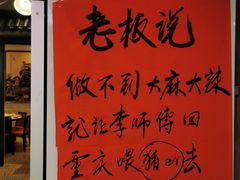 老板说
做不到大麻大辣
就让李师傅回
重庆喂猪去